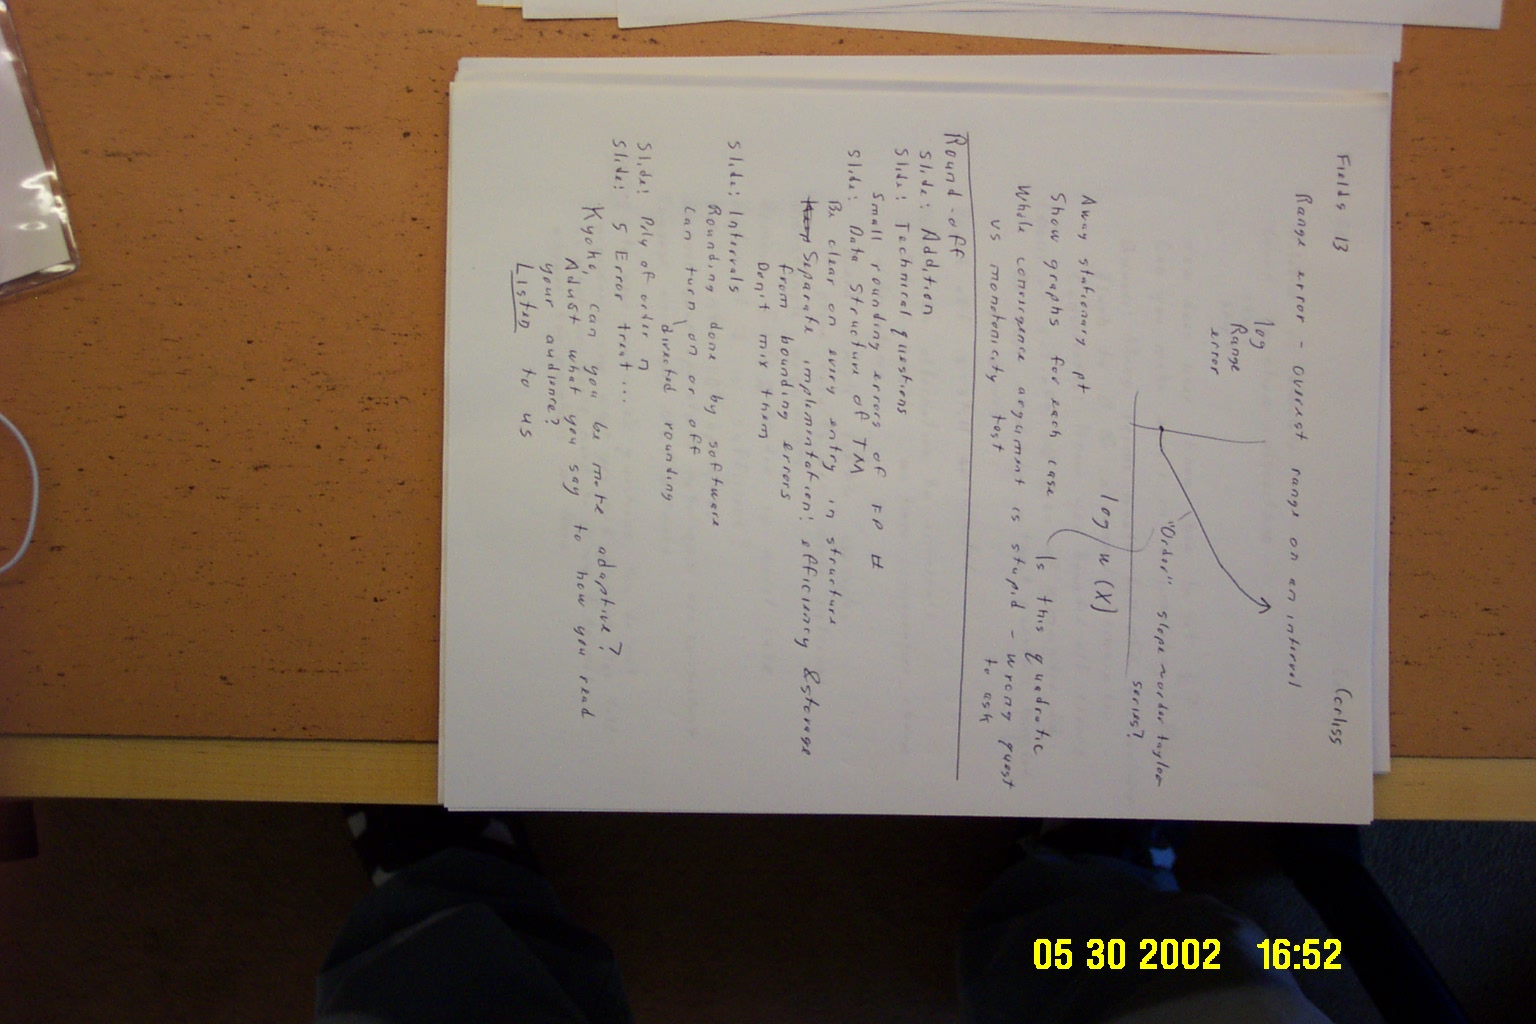 Fields 13
Corliss
Range error - overest range on an interval
log
Range
error
"Order" slope ~ order taylor
series?
log w(X)
Away stationary pt
Show graphs for each case
Is this quadratic
Whole convergence argument is stupid - wrong quest
to ask
vs monotonicity test
Round-off
Slide: Addition
Slide: Technical questions
Small rounding errors of FP #
Slide: Data Structure of TM
Be clear on every entry in structure
Separate implmentation: efficiency & storage
from bounding errors
Don't mix them
Slide: Intervals
Rounding done by software
can turn on or off
directed rounding
Slide: Poly of order n
Slide: § Error treat...
Kyoko, can you be more adaptive?
Adust what you say to how you read
your audience?
Listen to us
05 30 2002 16:52